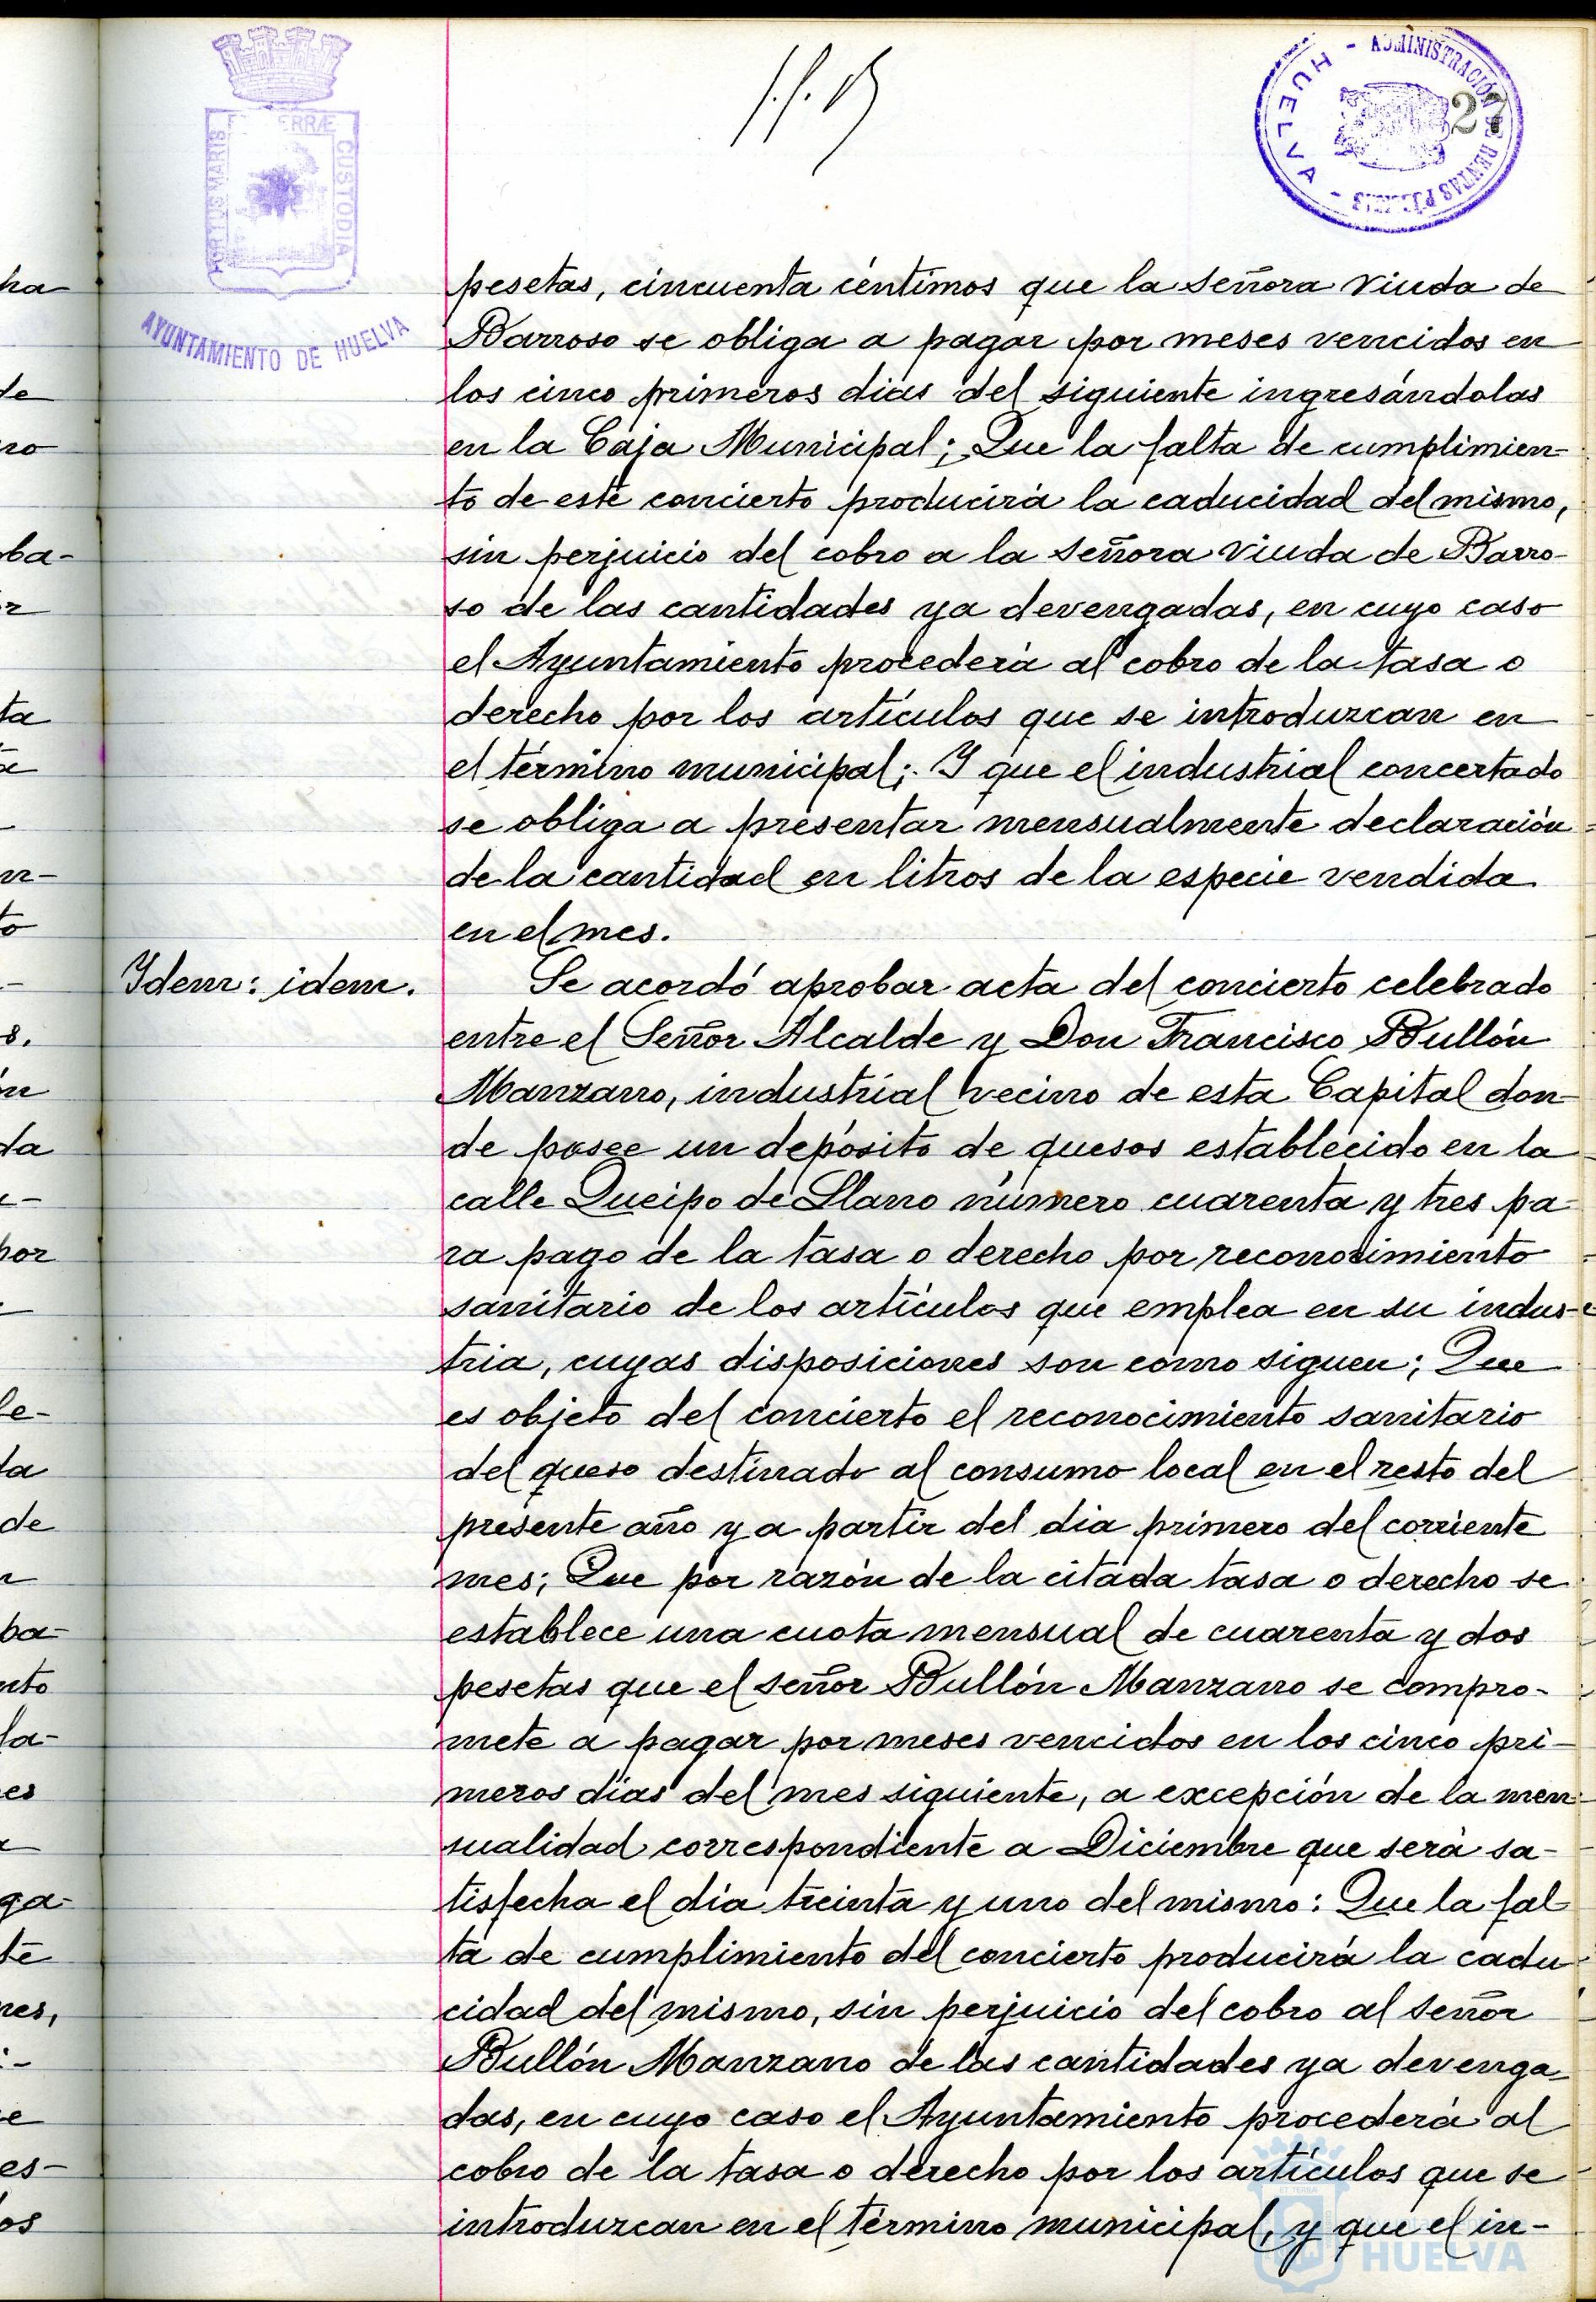 PORTUS MARIS
ERRÆ
CUSTODIA
AYUNTAMIENTO DE HUELVA
ADMINISTRACIÓN DE RENTAS PÚBLICAS - HUELVA -
27
pesetas, cincuenta céntimos que la Señora Viuda de
Barroso se obliga a pagar por meses vencidos en
los cinco primeros dias del siguiente ingresándolas
en la Caja Municipal; Que la falta de cumplimien-
to de este concierto producirá la caducidad del mismo,
sin perjuicio del cobro a la Señora Viuda de Barro-
so de las cantidades ya devengadas, en cuyo caso
el Ayuntamiento procederá al cobro de la tasa o
derecho por los artículos que se introduzcan en
el término municipal; Y que el industrial concertado
se obliga a presentar mensualmente declaración
de la cantidad en litros de la especie vendida
en el mes.
Ydem: idem.
Se acordó aprobar acta del concierto celebrado
entre el Señor Alcalde y Don Francisco Bullón
Manzano, industrial vecino de esta Capital don-
de posee un depósito de quesos establecido en la
calle Queipo de Llano número cuarenta y tres pa-
ra pago de la tasa o derecho por reconocimiento
sanitario de los artículos que emplea en su indus-
tria, cuyas disposiciones son como siguen; Que
es objeto del concierto el reconocimiento sanitario
del queso destinado al consumo local en el resto del
presente año y a partir del dia primero del corriente
mes; Que por razón de la citada tasa o derecho se
establece una cuota mensual de cuarenta y dos
pesetas que el señor Bullón Manzano se compro-
mete a pagar por meses vencidos en los cinco pri-
meros dias del mes siguiente, a excepción de la men-
sualidad correspondiente a Diciembre que será sa-
tisfecha el día treinta y uno del mismo: Que la fal
ta de cumplimiento del concierto producirá la cadu
cidad del mismo, sin perjuicio del cobro al señor
Bullón Manzano de las cantidades ya devenga-
das, en cuyo caso el Ayuntamiento procederá al
cobro de la tasa o derecho por los artículos que se
introduzcan en el término municipal, y que el in-
HUELVA